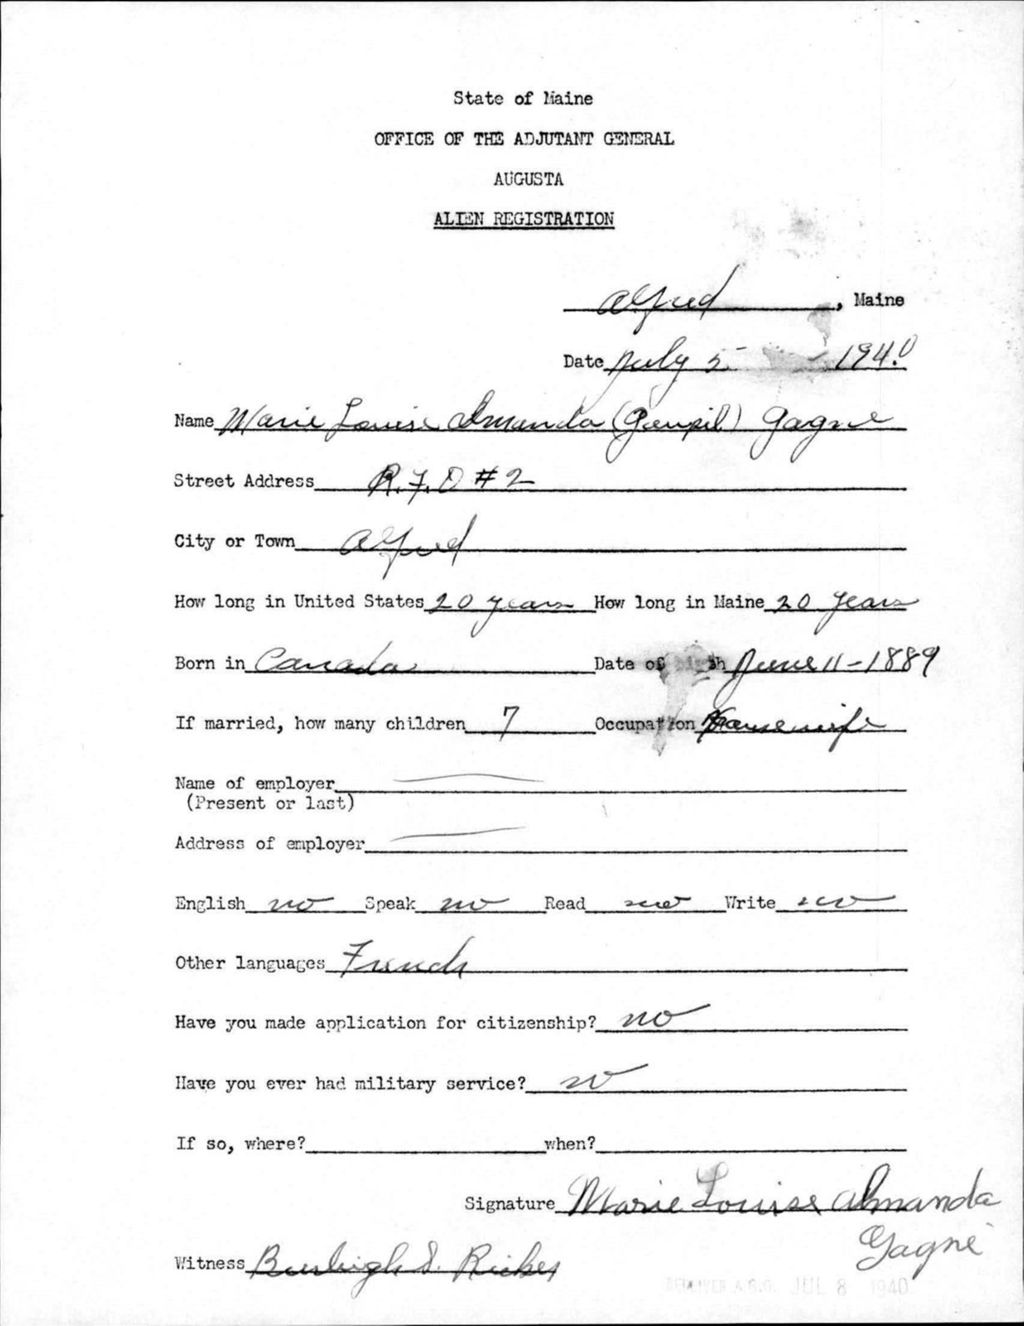 State of Maine
OFFICE OF THE ADJUTANT GENERAL
AUGUSTA
ALIEN REGISTRATION
Alfred, Maine
Date July 5 1940
Name Marie Louise Almanda (Goupil) Gagne
Street Address R.F.D #2
City or Town Alfred
How long in United States 20 years How long in Maine 20 years
Born in Canada Date of birth June 11-1889
If married, how many children 7 Occupation Housewife
Name of employer
(Present or last)
Address of employer
English no Speak no Read no Write no
Other languages French
Have you made application for citizenship? no
Have you ever had military service? no
If so, where? when?
Signature Marie Louise Almanda
Gagné
Witness Burleigh S.
A.G.O. JUL 8 1940